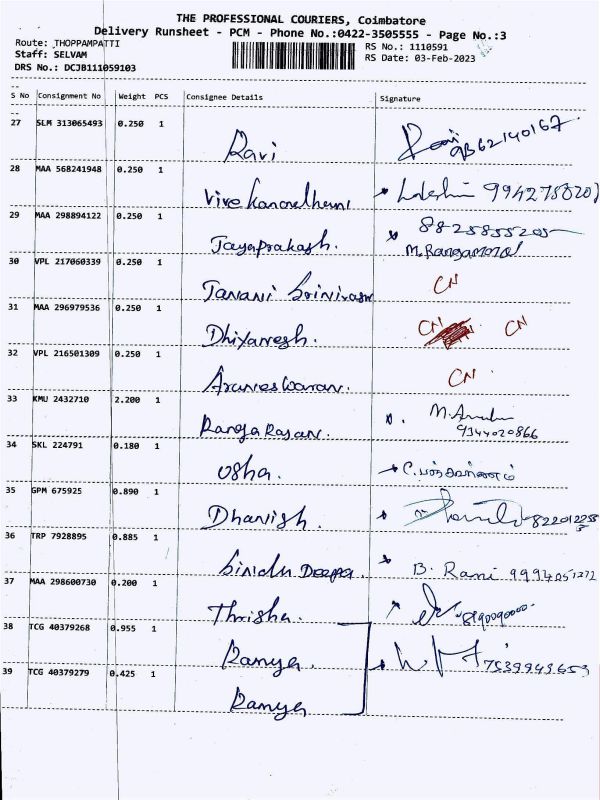 THE PROFESSIONAL COURIERS, Coimbatore
Delivery Runsheet - PCM - Phone No.:0422-3505555 - Page No.:3
Route: THOPPAMPATTI
RS No.: 1110591
Staff: SELVAM
RS Date: 03-Feb-2023
DRS No.: DCJB111059103
S No Consignment No Weight PCS Consignee Details Signature
27 SLM 313065493 0.250 1
Ravi Ravi 9862140167
28 MAA 568241948 0.250 1
29 MAA 298894122 0.250 1
8825855205
Jayaprakash.
30 VPL 217060339 0.250 1
Janani Srinivasan CN
31 MAA 296979536 0.250 1
Dhiyanesh. CN CN
32 VPL 216501309 0.250 1
Aruneswaran. CN
33 KMU 2432710 2.200 1
Ranga Rajan. 9344020866
34 SKL 224791 0.180 1
Usha.
35 GPM 675925 0.890 1
Dhanish.
36 TRP 7928895 0.885 1
Deepa. B. Rani
37 MAA 298600730 0.200 1
Thrisha. 8190090000
38 TCG 40379268 0.955 1
Ramya. 7539949653
39 TCG 40379279 0.425 1
Ramya